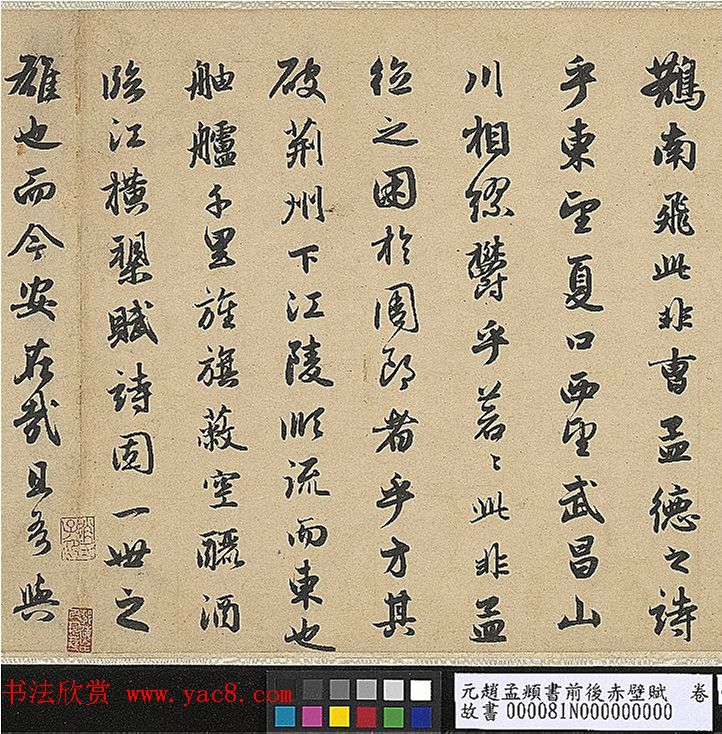 鵲南飛此非曹孟德之詩
乎東望夏口西望武昌山
川相繆欝乎蒼〻此非孟
德之困於周郎者乎方其
破荆州下江陵順流而東也
舳艫千里旌旗蔽空釃酒
臨江橫槊賦詩固一世之
雄也而今安在哉且吾與
书法欣赏 www.yac8.com
元趙孟頫書前後赤壁賦 卷
故書 000081N000000000